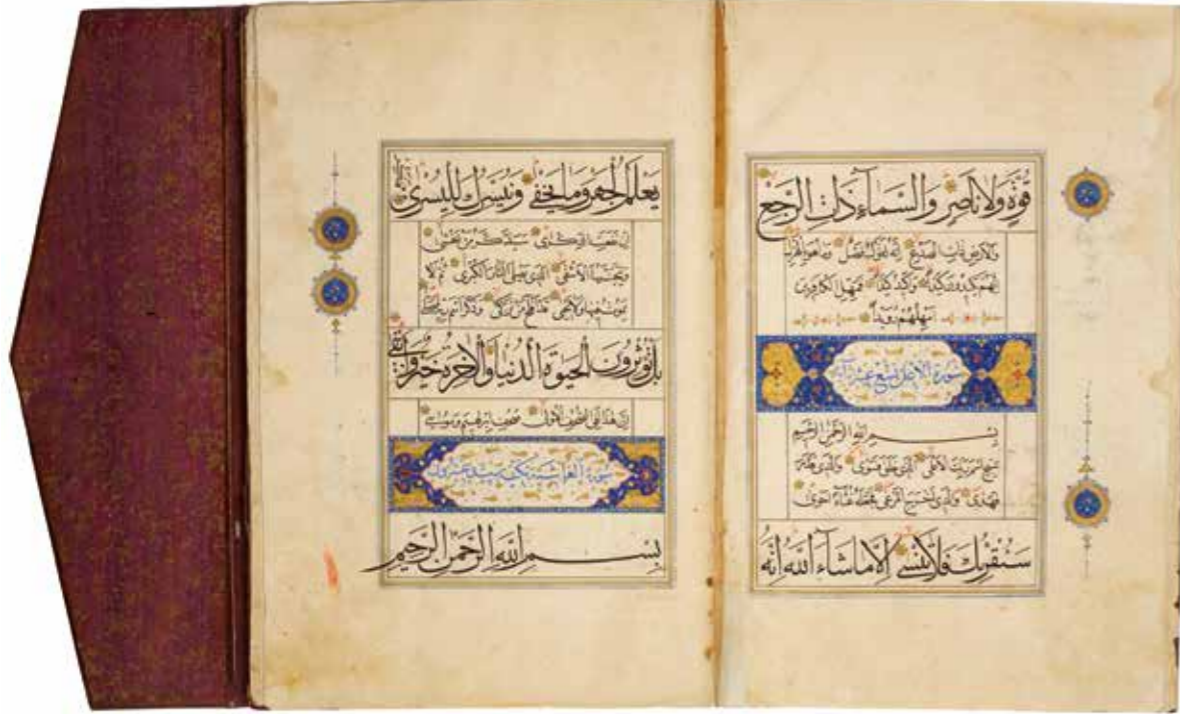 قُوَّةٍ وَلَا نَاصِرٍ وَالسَّمَاءِ ذَاتِ الرَّجْعِ
وَالْأَرْضِ ذَاتِ الصَّدْعِ إِنَّهُ لَقَوْلٌ فَصْلٌ وَمَا هُوَ بِالْهَزْلِ
إِنَّهُمْ يَكِيدُونَ كَيْدًا وَأَكِيدُ كَيْدًا فَمَهِّلِ الْكَافِرِينَ
أَمْهِلْهُمْ رُوَيْدًا
سورة الاعلى تسع عشر آية
بِسْمِ اللَّهِ الرَّحْمَنِ الرَّحِيمِ
سَبِّحِ اسْمَ رَبِّكَ الْأَعْلَى الَّذِي خَلَقَ فَسَوَّى وَالَّذِي قَدَّرَ
فَهَدَى وَالَّذِي أَخْرَجَ الْمَرْعَى فَجَعَلَهُ غُثَاءً أَحْوَى
سَنُقْرِئُكَ فَلَا تَنْسَى إِلَّا مَا شَاءَ اللَّهُ إِنَّهُ
يَعْلَمُ الْجَهْرَ وَمَا يَخْفَى وَنُيَسِّرُكَ لِلْيُسْرَى فَذَكِّرْ
إِنْ نَفَعَتِ الذِّكْرَى سَيَذَّكَّرُ مَنْ يَخْشَى
وَيَتَجَنَّبُهَا الْأَشْقَى الَّذِي يَصْلَى النَّارَ الْكُبْرَى ثُمَّ لَا
يَمُوتُ فِيهَا وَلَا يَحْيَى قَدْ أَفْلَحَ مَنْ تَزَكَّى وَذَكَرَ اسْمَ رَبِّهِ فَصَلَّى
بَلْ تُؤْثِرُونَ الْحَيَوةَ الدُّنْيَا وَالْآخِرَةُ خَيْرٌ وَأَبْقَى
إِنَّ هَذَا لَفِي الصُّحُفِ الْأُولَى صُحُفِ إِبْرَهِيمَ وَمُوسَى
سورة الغاشية مكية ست وعشرون
بِسْمِ اللَّهِ الرَّحْمَنِ الرَّحِيمِ